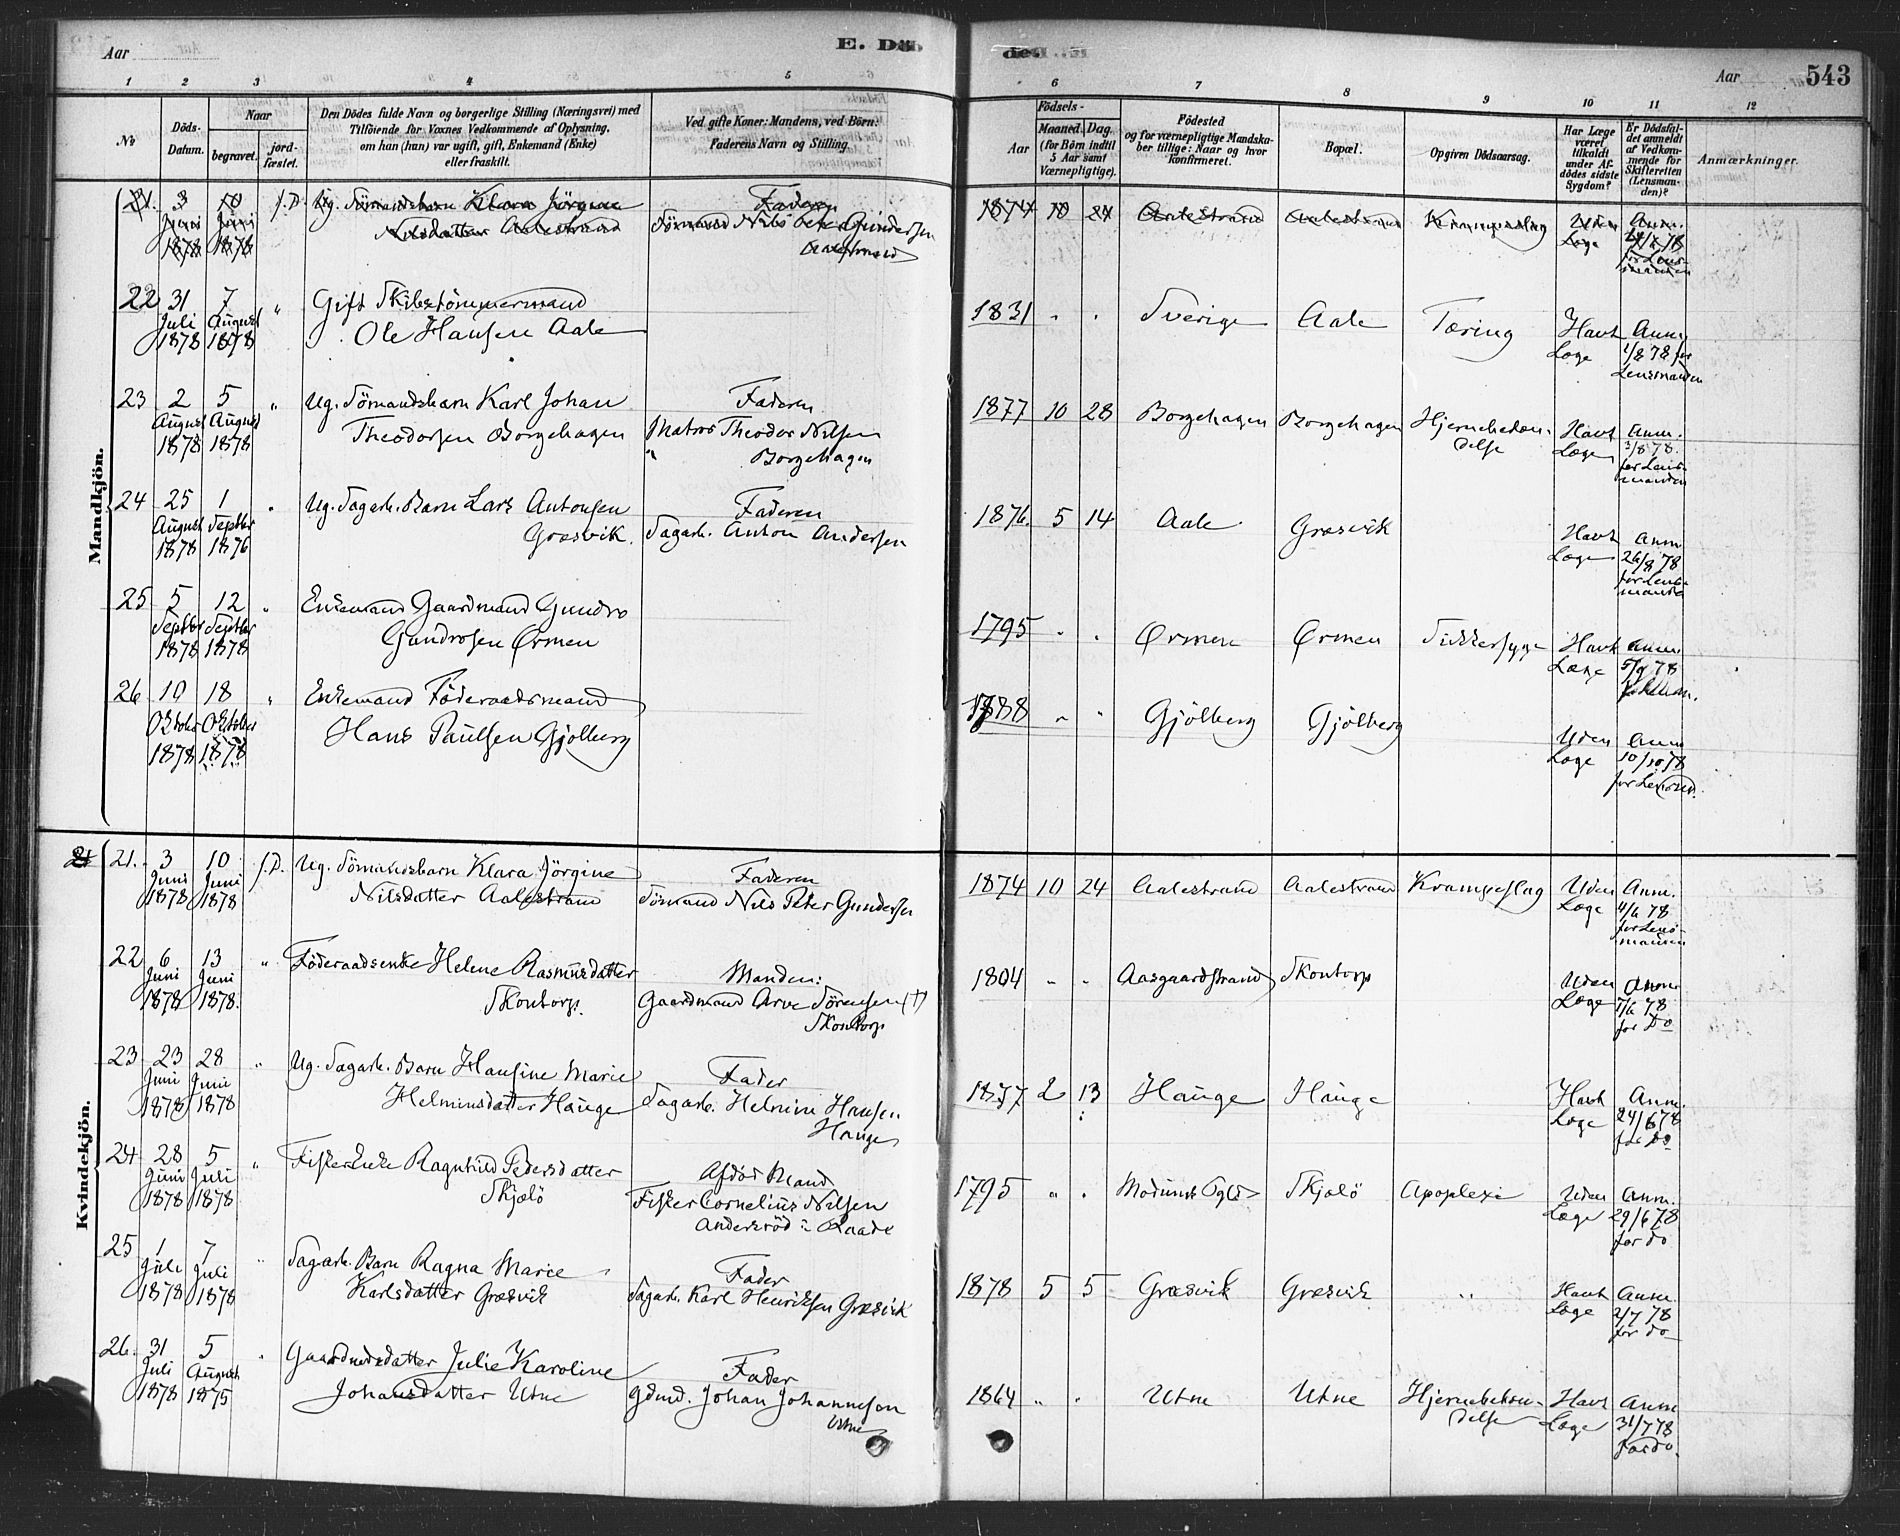 Aar
E. Dö
de
Aar
543
1 2 3 4 5 6 7 8 9 10 11 12
№
Döds-Datum.
Naar
begravet.
jord-fæstet.
Den Dödes fulde Navn og borgerlige Stilling (Næringsvei) med
Tilföiende for Voxnes Vedkommende af Oplysning,
om han (hun) var ugift, gift, Enkemand (Enke)
eller fraskilt.
Ved gifte Koner: Mandens, ved Börn:
Faderens Navn og Stilling.
Födsels-
Aar
Maaned. Dag.
(for Börn indtil
5 Aar samt
Værnepligtige).
Födested
og for værnepligtige Mandska-
ber tillige: Naar og hvor
konfirmeret.
Bopæl.
Opgiven Dödsaarsag.
Har Læge
været
tilkaldt
under Af-
dödes sidste
Sygdom?
Er Dödsfal-
det anmeldt
af Vedkom-
mende for
Skifteretten
(Lensman-
den)?
Anmærkninger.
Mandkjön.
21. 3 Juni 1878 10 Juni 1878 f.D. Ug. Sömandsbarn Klara Jörgine
Nilsdatter Aalestrand
Faderen
Sömand Nils Peter Gundersen
Aalestrand
1874 10 24 Aalestrand Aalestrand Krampeslag Uden Læge Anm. 4/6 78 for Lensmanden
22 31 Juli 1878 7 August 1878 " Gift Skibstömmermand
Ole Hansen Aale
1831 " " Sverige Aale Tæring Havt Læge Anm 1/8 78 for Lensmanden
23 2 August 1878 5 August 1878 " Ug. Sömandsbarn Karl Johan
Theodorsen Borgehagen
Faderen
Matros Theodor Nilsen
" Borgehagen
1877 10 28 Borgehagen Borgehagen Hjernebetændelse Havt Læge Anm. 3/8 78. for Lensmanden
24 25 August 1878 1 Septbr 1876 " Ug. Sagarb. Barn Lars Antonsen
Græsvik.
Faderen
Sagarb. Anton Andersen
1876. 5 14 Aale Græsvik Havt Læge Anm 26/8 78 for Lensmanden
25 5 Septbr 1878 12 Septbr 1878 " Enkemand Gaardmand Gundro
Gundrosen Ørmen
1795 " " Ørmen Ørmen Sukkersyge Havt Læge Anm 5/9 78
26 10 Oktober 1878 18 Oktober 1878 " Enkemand Föderaadsmand
Hans Paulsen Gjölberg
1788 " " Gjölberg Gjölberg Uden Læge Anm 10/10 78 for Lensmd.
Kvindekjön.
21 21. 3 Juni 1878 10 Juni 1878 f.D. Ug. Sömandsbarn Klara Jörgine
Nilsdatter Aalestrand
Faderen
Sömand Nils Peter Gundersen
1874 10 24 Aalestrand Aalestrand Krampeslag Uden Læge Anm. 4/6 78 for Lensmanden
22 6 Juni 1878 13 Juni 1878. " Föderaadsenke Helene Rasmusdatter
Skontorp.
Manden:
Gaardmand Arve Sörensen (†)
Skontorp
1804 " " Aasgaardstrand Skontorp Uden Læge Anm 7/6 78 for Do
23 23 Juni 1878 28 Juni 1878 " Ug. Sagarb. Barn Hansine Marie
Helminsdatter Hauge
Fader
Sagarb. Helmin Hansen
Hauge
1877 2 13 Hauge Hauge Havt Læge Anm. 24/6 78 for Do
24 28 Juni 1878 5 Juli 1878 " Fisker Enke Ragnhild Pedersdatter
Skjælö
Afdöd Mand
Fisker Cornelius Nilsen
Andersröd i Raade
1795 " " Skjælö Apoplexi Uden Læge Anm. 29/6 78 for do
25 1 Juli 1878 7 Juli 1878 " Sagarb. Barn Ragna Marie
Karlsdatter Græsvik
Fader
Sagarb. Karl Henriksen Græsvik
1878 5 5 Græsvik Græsvik " Havt Læge Anm. 2/7 78 for do
26. 31 Juli 1878 5 August 1875 " Gaardmdsdatter Julie Karoline
Johansdatter Utne
Fader
Gdmd. Johan Johannesen
Utne
1864 " " Utne Utne Hjernebetændelse Havt Læge Anm 31/7 78 for do.